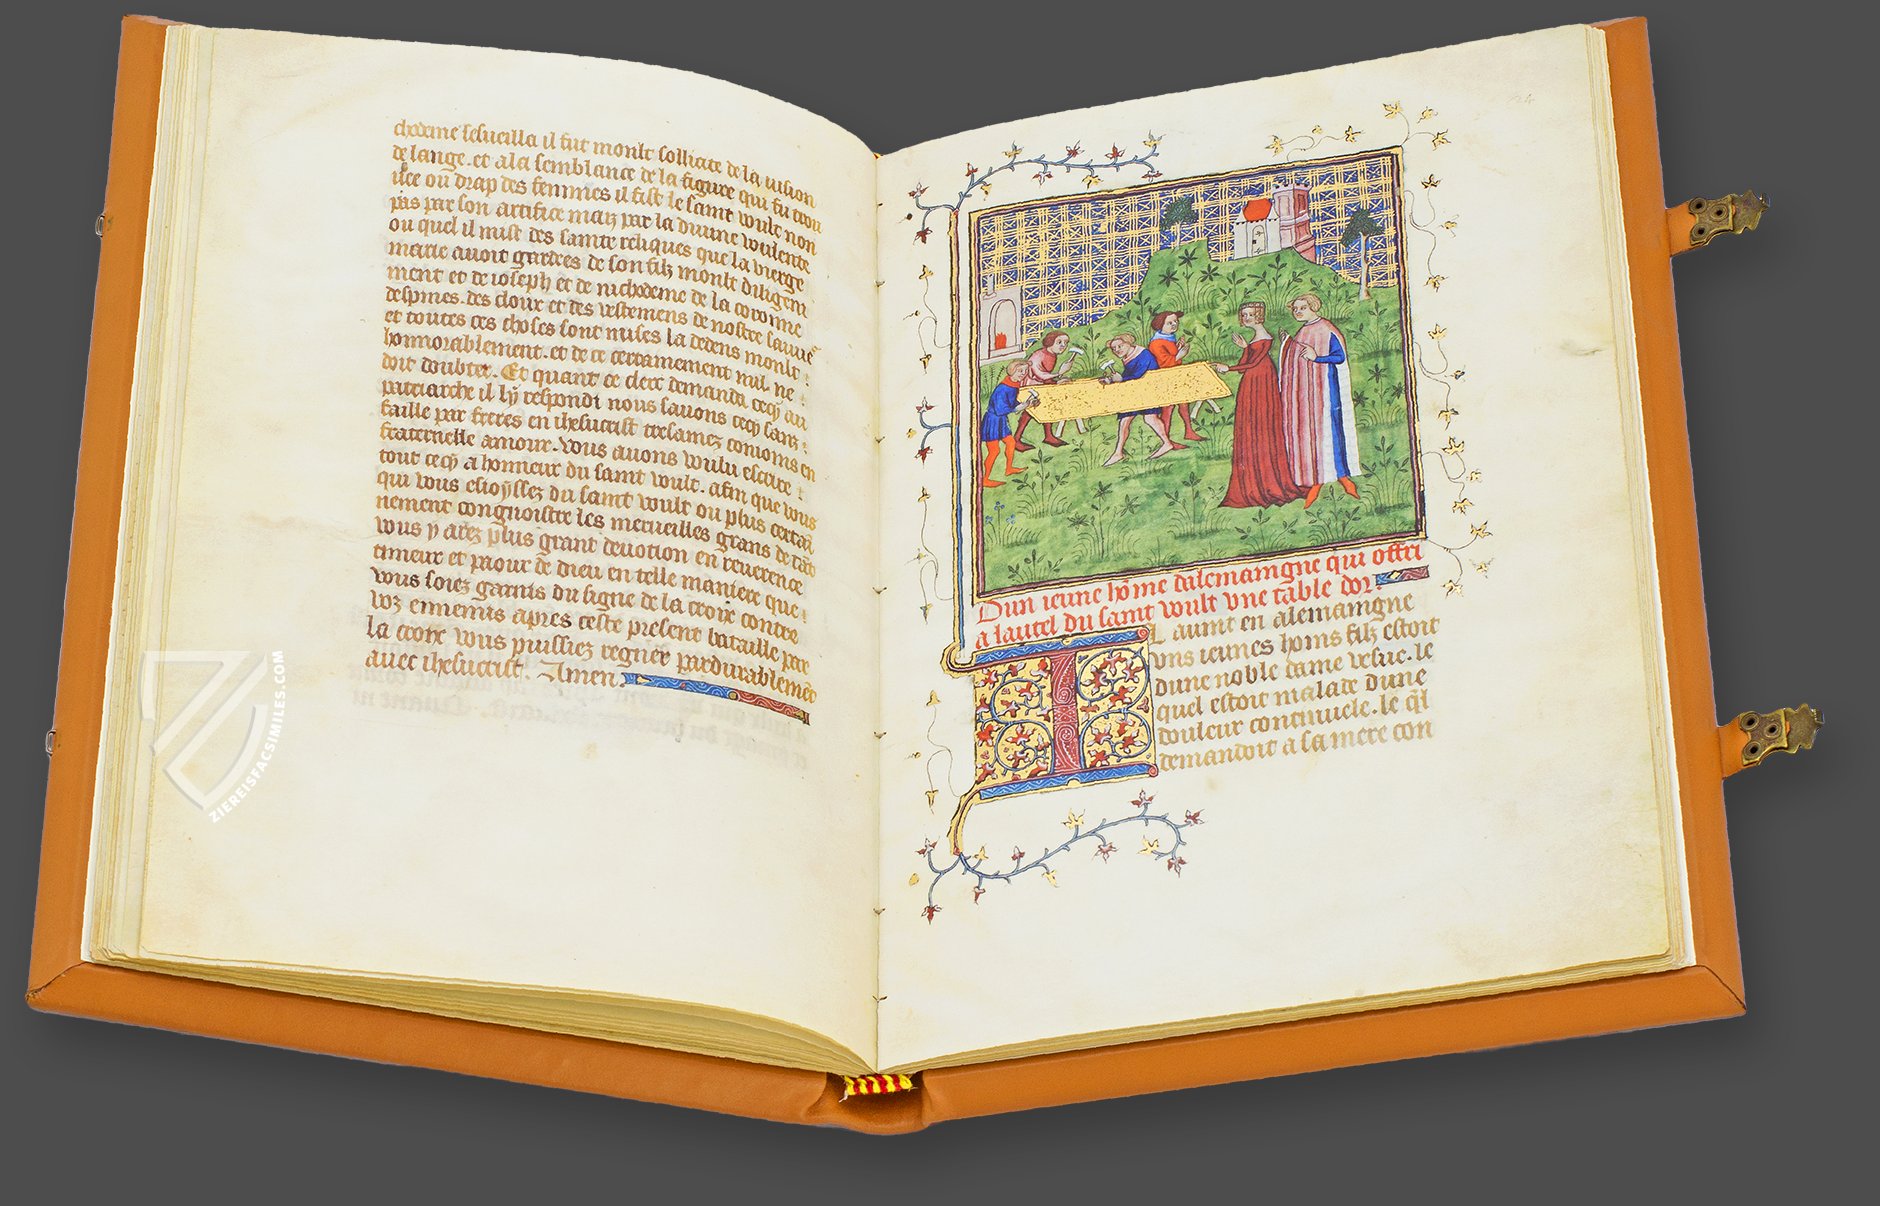 chodeme sesueilla il fut moult sollicite de la vision
de lange. et a la semblance de la figure qui fu trou
uee ou drap des femmes il fist le saint voult non
pas par son artifice maiz par la diuine voulente
ou quel il mist des sainte reliques que la vierge
marie auoit gardees de son filz moult diligem
ment et de ioseph et de nichodeme de la coronne
despines. des cloux et des vestemens de nostre sauue
et toutes ces choses sont mises la dedens moult
honnorablement. et de ce certainement nul ne
doit doubter. Et quant ce clerc demanda cecy au
patriarche il ly respondi nous sauons cecy sans
faille par freres en ihesucrist tresamez conioins en
fraternelle amour. Vous auons voulu escrire
tout cecy a honneur du saint voult. afin que vous
qui vous esioyssez du saint voult ou plus certai
nement congnoistre les merueilles grans de
vous y aiez plus grant deuotion en reuerence
timeur et paour de dieu en telle maniere que
vous soiez garnis du signe de la croix contre
voz ennemis apres ceste present bataille par
la croix vous puissiez regner pardurablemēt
auec ihesucrist. Amen.
Dun ieune hōme dalemaingne qui offri
a lautel du saint voult vne table dor
Il auint en alemaingne
vns ieunes homs filz estoit
dune noble dame vesue. le
quel estoit malade dune
douleur continuele. le q̄l
demandoit a sa mere con
ZIEREISFACSIMILES.COM